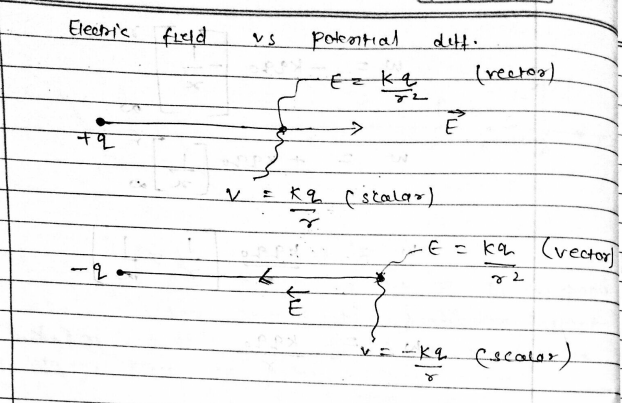 Electric field vs potential diff.
E = kq/r2 (vector)
+q
E
v = kq/r (scalar)
E = kq/r2 (vector)
-q
E
v = -kq/r (scalar)